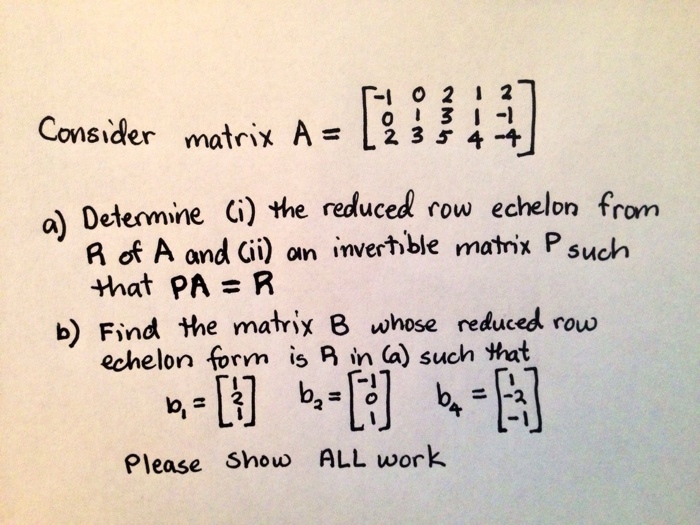 Consider matrix A = [-1 0 2 1 2
0 1 3 1 -1
2 3 5 4 -4]
a) Determine (i) the reduced row echelon from
R of A and (ii) an invertible matrix P such
that PA = R
b) Find the matrix B whose reduced row
echelon form is R in (a) such that
b₁ = [1 2 1] b₂ = [-1 0 1] b₄ = [1 -2 -1]
Please show ALL work